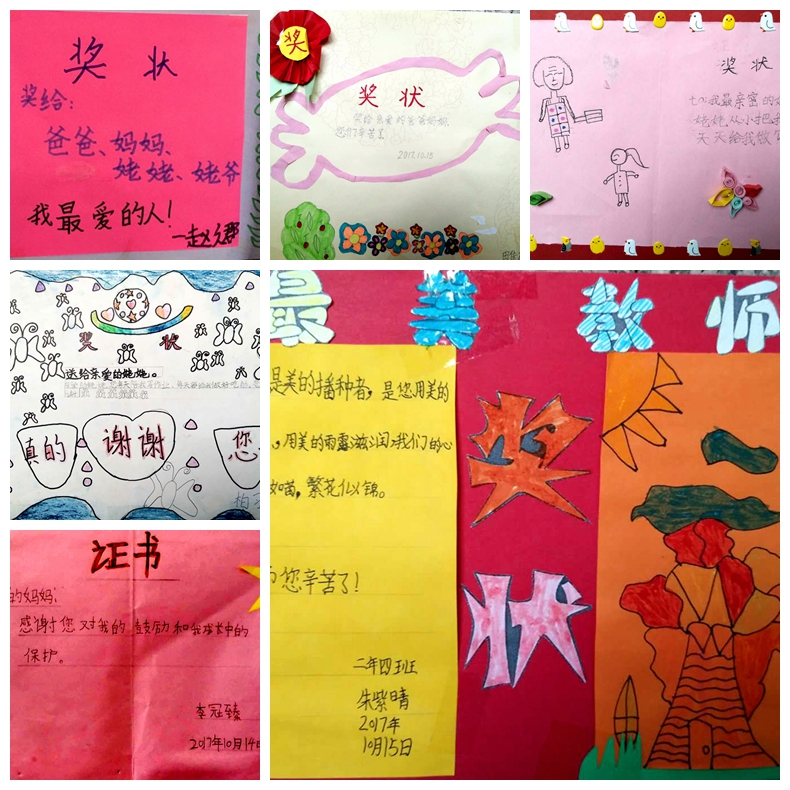 奖 状
奖给：
爸爸、妈妈、
姥姥、姥爷
我最爱的人！
奖
奖 状
奖给亲爱的爸爸妈妈
您们辛苦了
2017.10.15
奖 状
七〇：我最亲密的
姥姥，从小把我
天天给我做
奖 状
送给亲爱的姥姥。
真的
谢谢
您
证书
的妈妈：
感谢您对我的鼓励和我成长中的
保护。
李冠臻
2017年10月14日
最 美 教 师
是美的播种者，是您用美的
，用美的雨露滋润我们的心
如茵，繁花似锦。
您辛苦了！
二年四班
朱紫晴
2017年
10月15日
奖
状